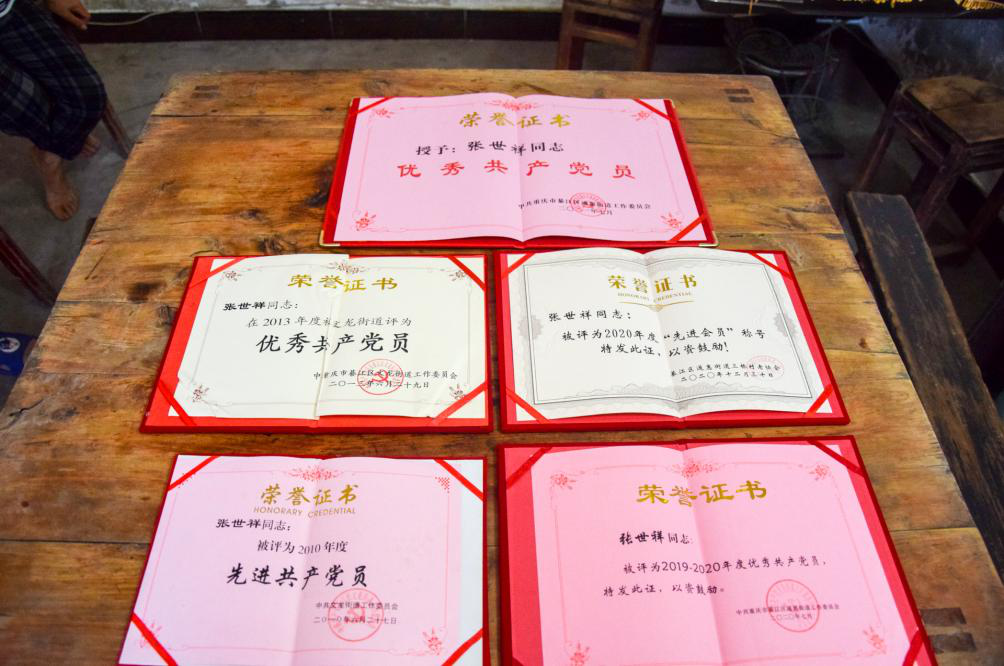 荣誉证书
授予：张世祥同志
优秀共产党员
中共重庆市綦江区通惠街道工作委员会
二〇二一年七月
荣誉证书
张世祥同志：
在2013年度被文龙街道评为
优秀共产党员
中共重庆市綦江区文龙街道工作委员会
二〇一三年六月二十九日
荣誉证书
HONORARY CREDENTIAL
张世祥同志：
被评为2020年度“先进会员”称号
特发此证，以资鼓励！
綦江区通惠街道三桥村老协会
二〇二〇年十二月三十日
荣誉证书
HONORARY CREDENTIAL
张世祥同志：
被评为2010年度
先进共产党员
中共文龙街道工作委员会
二〇一〇年六月二十七日
荣誉证书
张世祥同志：
被评为2019-2020年度优秀共产党员，
特发此证，以资鼓励。
中共重庆市綦江区通惠街道工作委员会
二〇二〇年七月